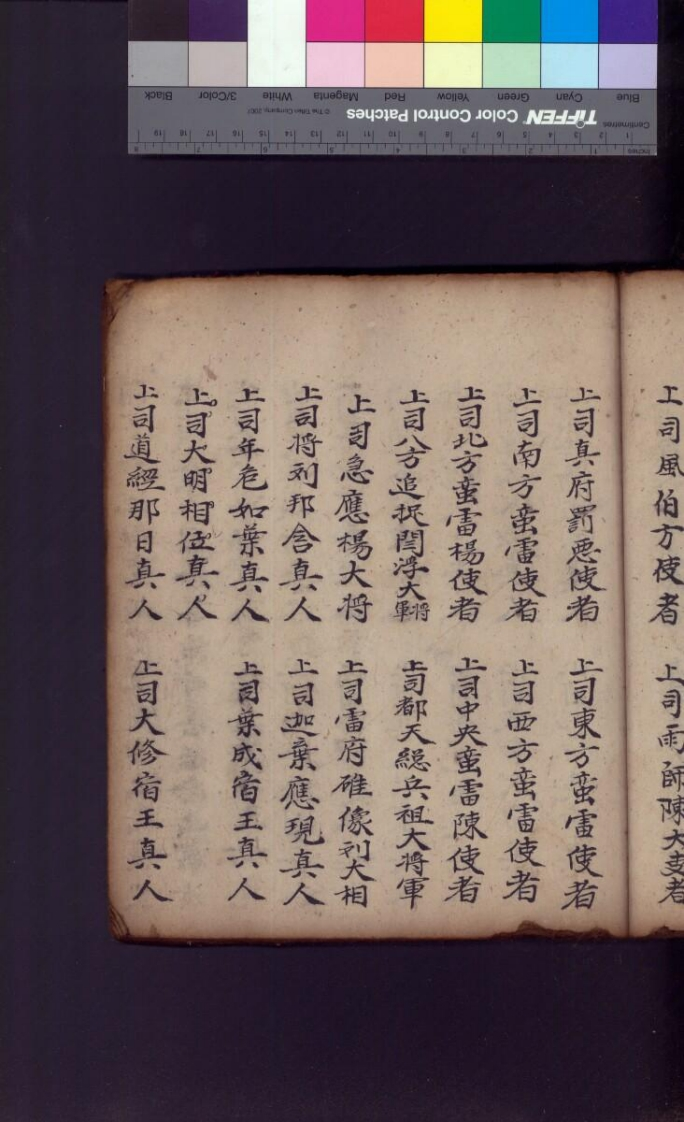 Blue Cyan Green Yellow Red Magenta White 3/Color Black
Centimetres TIFFEN Color Control Patches © The Tiffen Company, 2007
1 2 3 4 5 6 7 8 9 10 11 12 13 14 15 16 17 18 19
Inches 1 2 3 4 5 6 7 8
上司風伯方使者 上司雨師陳大吏者
上司真府罰惡使者 上司東方蛮雷使者
上司南方蛮雷使者 上司西方蛮雷使者
上司北方蛮雷楊使者 上司中央蛮雷陳使者
上司八方追捉閆浮大將軍 上司都天総兵祖大将軍
上司急應楊大将 上司雷府碓像列大相
上司将列邦含真人 上司迦葉應現真人
上司年危如葉真人 上司葉成宿王真人
上司大明相位真人
上司道經那日真人 上司大修宿王真人